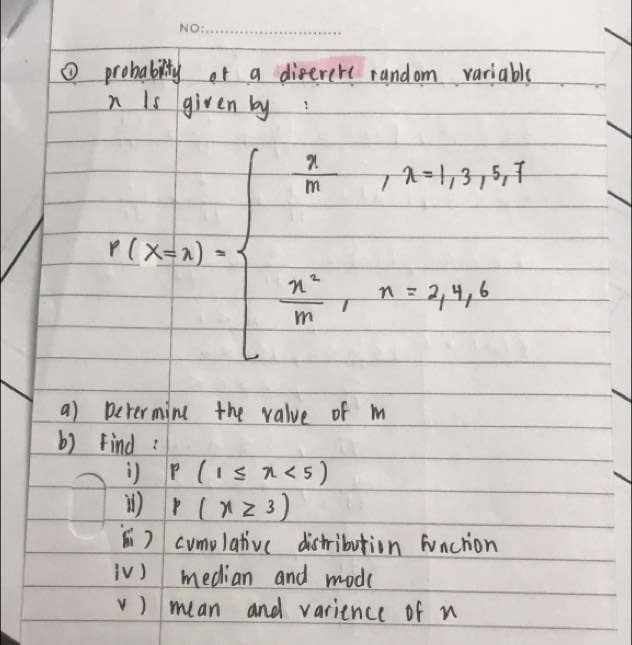 NO:
① probability of a discrete random variable
x is given by :
P(X=x) = { x/m , x = 1, 3, 5, 7
x²/m , x = 2, 4, 6
a) Determine the value of m
b) Find :
i) P ( 1 ≤ x < 5 )
ii) P ( x ≥ 3 )
iii) cumulative distribution function
iv) median and mode
v) mean and varience of x